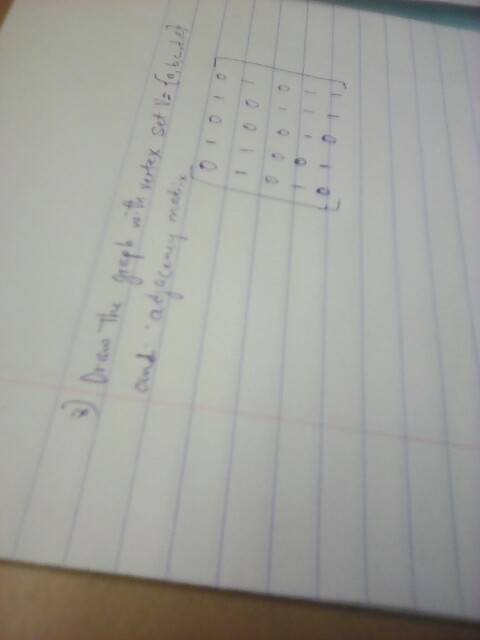 8) Draw the graph with vertex set V = {a,b,c,d,e}
and adjacency matrix
0 1 0 1 0
1 1 0 0 1
0 0 0 1 0
1 0 1 1 1
0 1 0 1 1